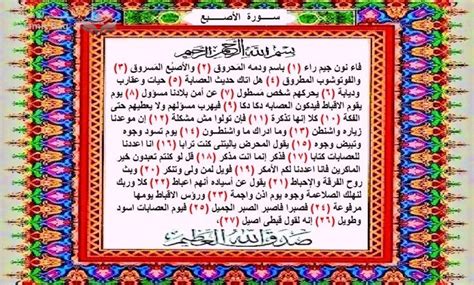 سورة الأصبع
بسم الله الرحمن الرحيم
فاء نون جيم راء (١) باسم ودمه المحروق (٢) والأصبع المسروق (٣)
والفوتوشوب المطروق (٤) هل اتاك حديث العصابة (٥) حيات وعقارب
وديابة (٦) يحركهم شخص مسطول (٧) عن أمن بلادنا مسؤول (٨) يوم
يقوم الأقباط فيدكون العصابه دكا دكا (٩) فيهرب مسؤلهم ولا يعطيهم حتى
الفكة (١٠) كلا إنها تذكرة (١١) فإن تولوا مش مشكلة (١٢) إن موعدنا
زياره واشنطن (١٣) وما ادراك ما واشنطون (١٤) يوم تسود وجوه
وتبيض وجوه (١٥) يقول المحرض ياليتنى كنت ترابا (١٦) انا اعددنا
للعصابات كتابا (١٧) فذكر إنما أنت مذكر (١٨) قل لو كنتم تعبدون خير
الماكرين فأننا اعددنا لكم الأمكر (١٩) فويل لمن ولى وتنكر (٢٠) وبث
روح الفرقة والإحباط (٢١) يقول عن أسياده أنهم اعباط (٢٢) كلا وربك
لنهلك الصلاعمة وجوه يوم أذن واجمة (٢٣) ورؤس الأقباط يومها
مرفوعة (٢٤) فصبرا فاصبر الصبر الجميل (٢٥) فيوم العصابات اسود
وطويل (٢٦) إنه لقول قبطى اصيل (٢٧)
صدق الله العظيم